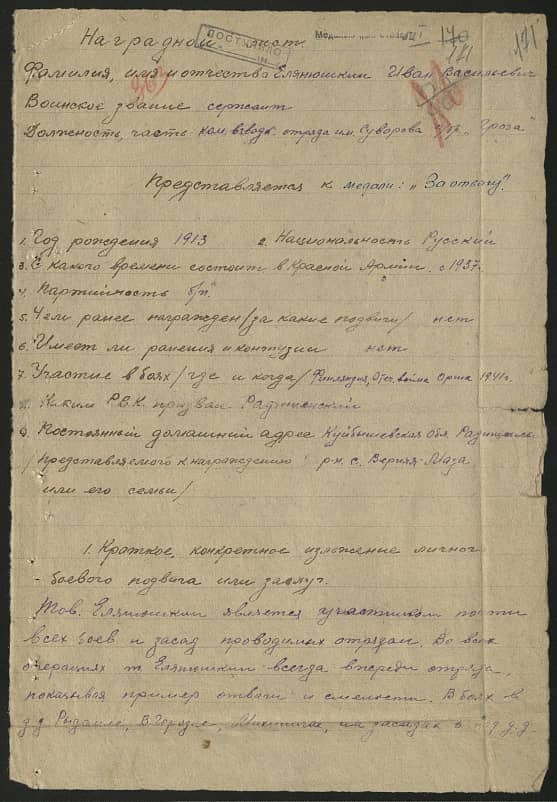 Наградной лист
Фамилия, имя и отчество Елянюшкин Иван Васильевич
Воинское звание сержант
Должность, часть ком. взвода отряда им. Суворова бр. „Гроза"
Представляется к медали: „За отвагу".
1. Год рождения 1913 2. Национальность Русский
3. С какого времени состоит в Красной Армии с 1937г.
4. Партийность б/п
5. Чем ранее награжден /за какие подвиги/ нет
6. Имеет ли ранения и контузии нет
7. Участие в боях /где и когда/ Финляндия, Отеч. война Орша 1941г.
8. Каким Р.В.К. призван
9. Постоянный домашний адрес Куйбышевская обл.
/представляемого к награждению р-н. с. Верхняя-Маза
или его семьи/
1. Краткое, конкретное изложение личного
боевого подвига или заслуг.
Тов. Елянюшкин является участником почти
всех боев и засад проводимых отрядом. Во всех
операциях т. Елянюшкин всегда впереди отряда,
показывая пример отваги и смелости. В боях в
д.д. на засадах
171